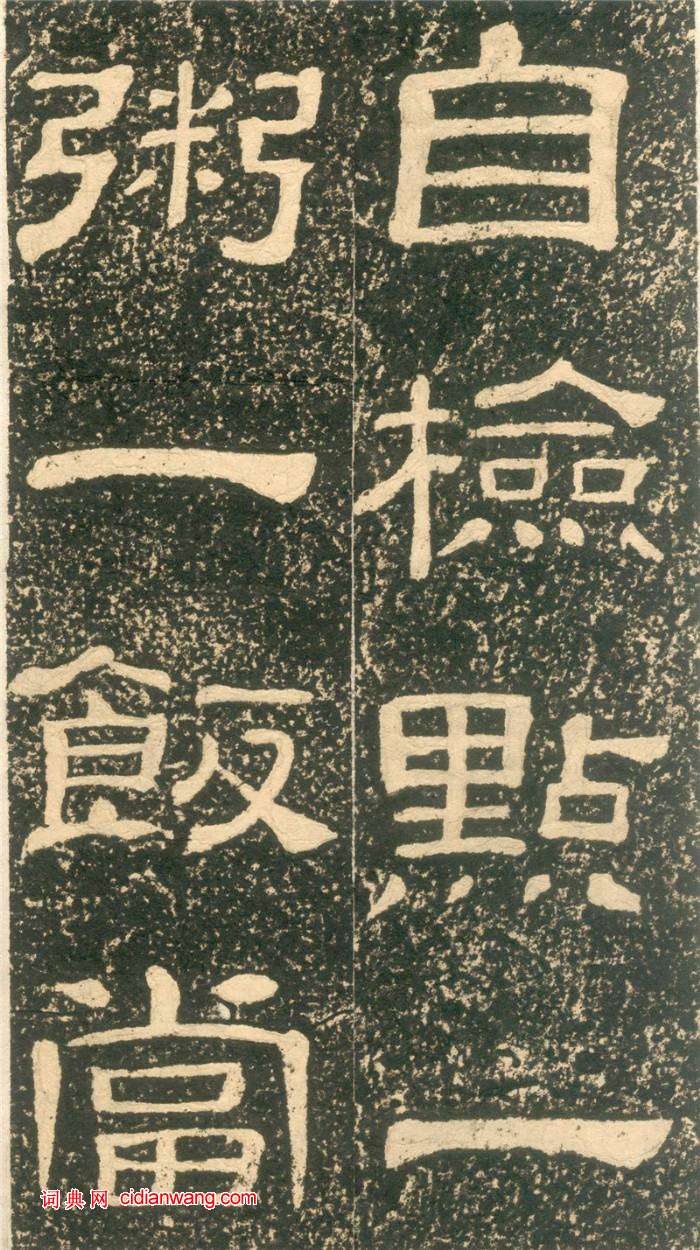 自檢點一
粥一飯當
词典网 cidianwang.com